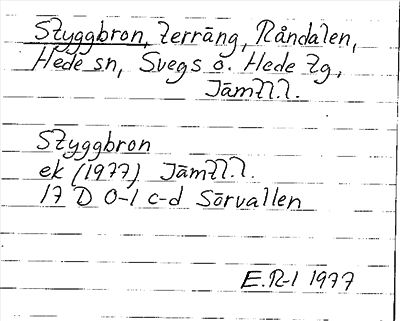 Styggbron, terräng, Råndalen,
Hede sn, Svegs o. Hede tg,
Jämtl.l.
Styggbron
ek (1977) Jämtl.l.
17 D 0-1 c-d Sörvallen
E.R-l 1977